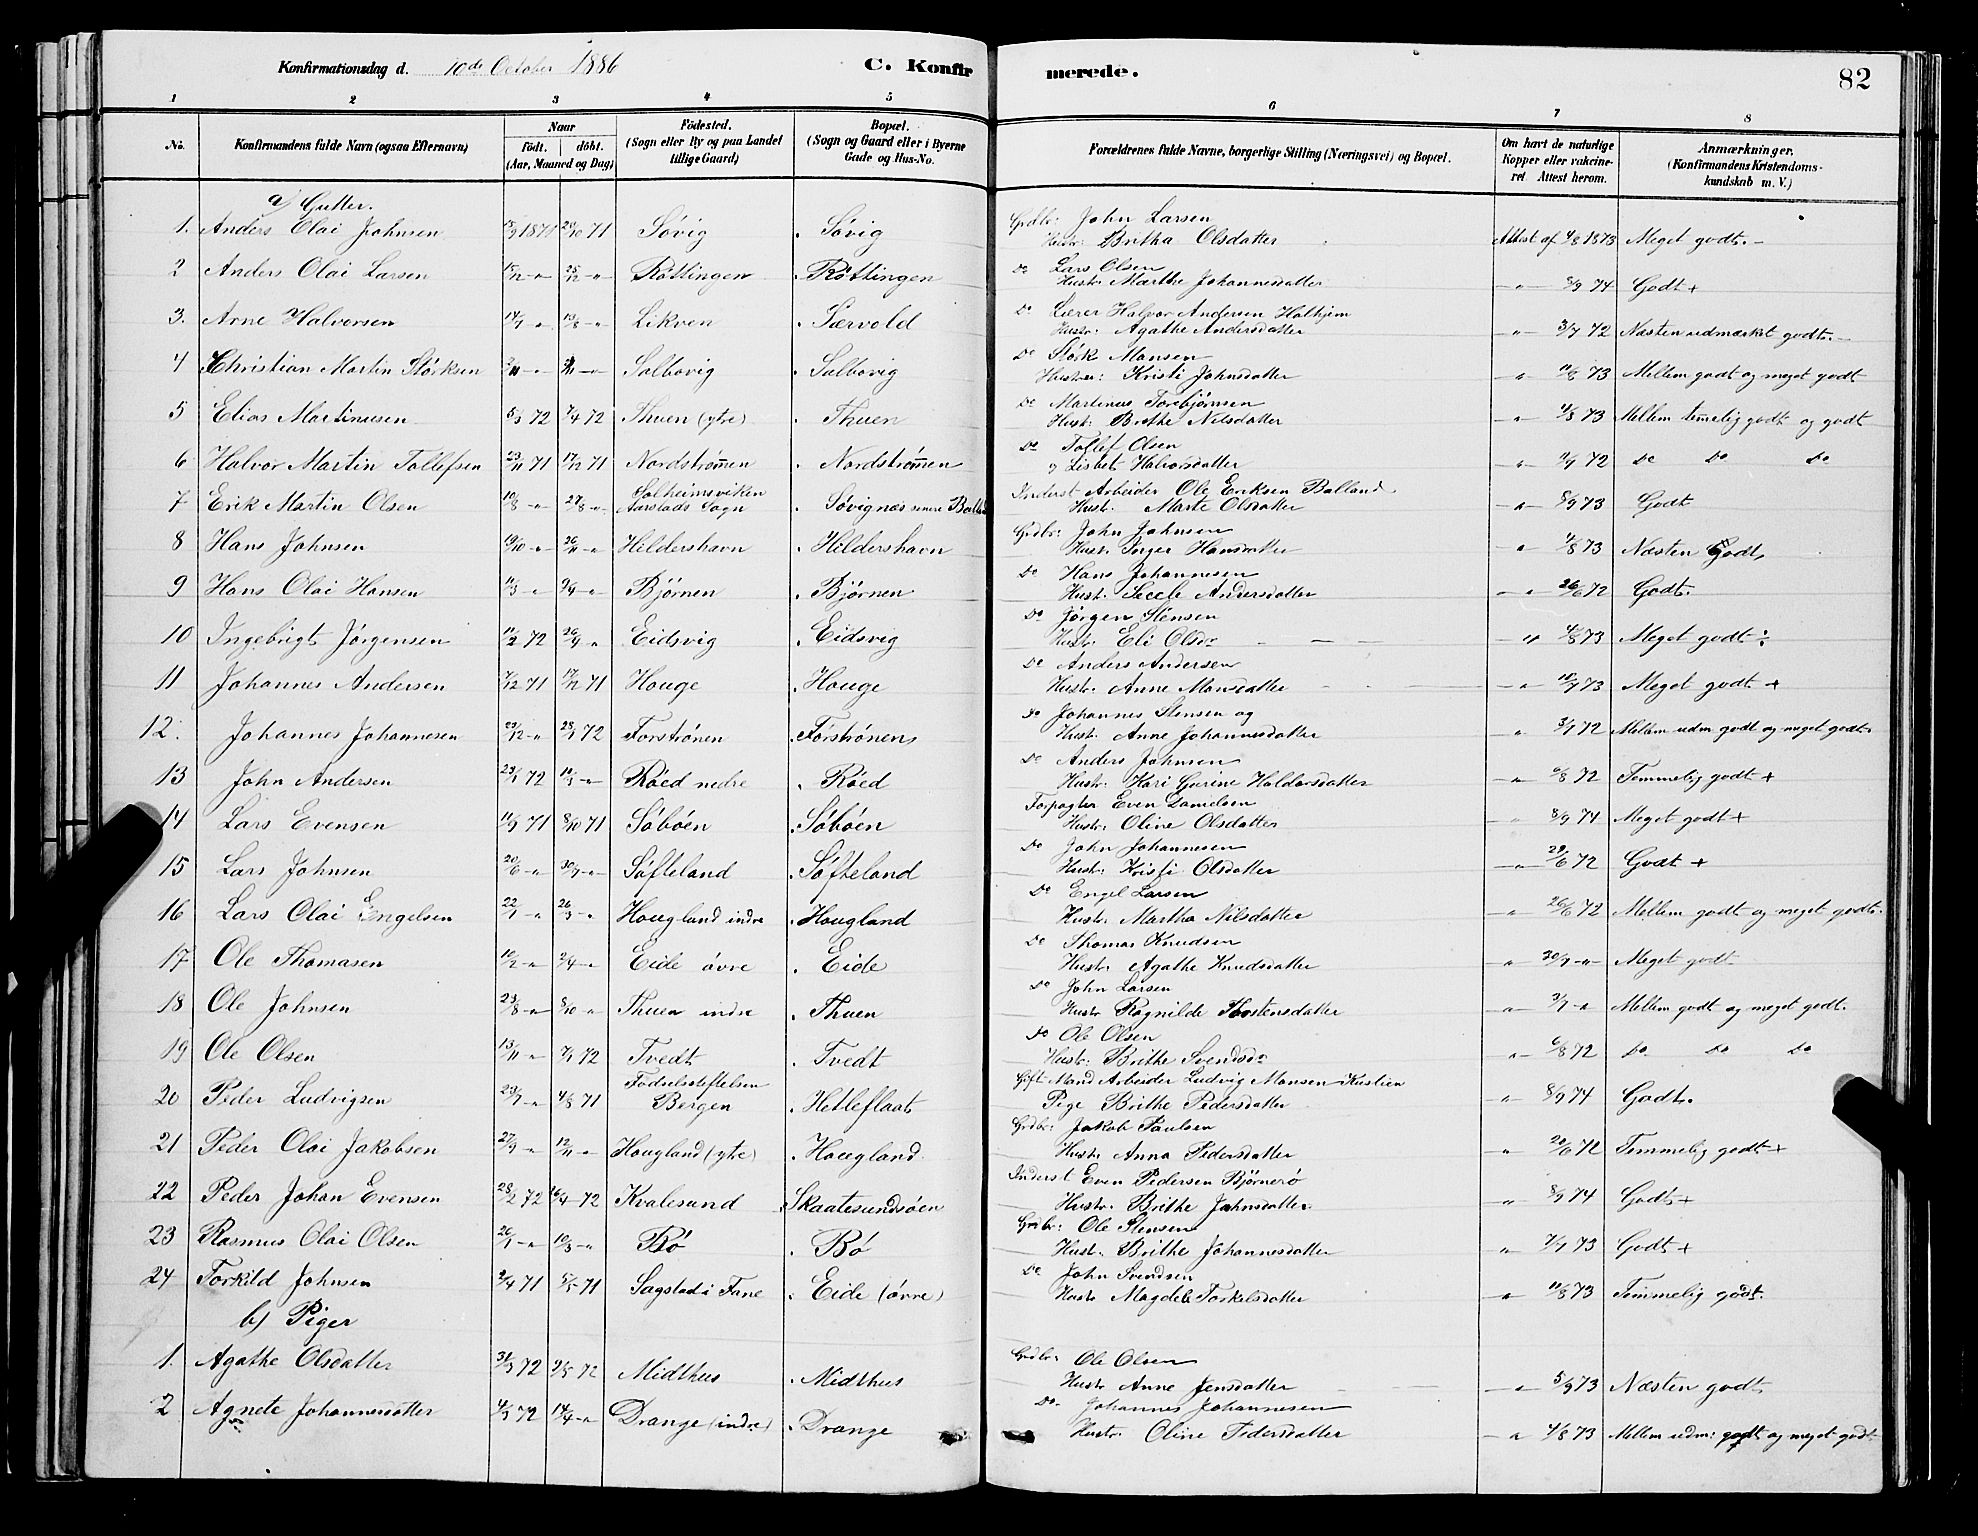 Konfirmationsdag d. 10de October 1886 C. Konfirmerede. 82
1 2 3 4 5 6 7 8
No. Konfirmandens fulde Navn (ogsaa Efternavn) Naar født. døbt. (Aar, Maaned og Dag) Fødested. (Sogn eller By og paa Landet tillige Gaard) Bopæl. (Sogn og Gaard eller i Byerne Gade og Hus-No. Forældrenes fulde Navne, borgerlige Stilling (Næringsvei) og Bopæl. Om havt de naturlige Kopper eller vakcineret Attest herom. Anmærkninger. (Konfirmandens Kristendomskundskab m. V.)
a) Gutter.
1. Anders Olai Johnsen 1871 71 Søvig Søvig Grdbr: John Larsen
Hustr: Britha Olsdatter Attest af 1873 Meget godt.
2 Anders Olai Larsen Røttingen Røttingen Do Lars Olsen
Hustr: Marthe Johannesdatter 8/9 74 Godt +
3. Arne Halvorsen Likven Særvold Do Lærer Halvor Andersen Halhjem
Hustr: Agathe Andersdatter 3/7 72 Næsten udmærket godt.
4 Christian Martin Størksen Salbovig Salbovig Do Størk Monsen
Hustru: Kristi Johnsdatter 73 Mellem godt og meget godt
5 Elias Martinusen 5/3 72 7/4 72 Thuen (ytre) Thuen Do Martinus Torebjørnsen
Hust: Brithe Nilsdatter 73 Mellem temmelig godt og godt
6 Halvor Martin Tollefsen 23/11 71 17/12 71 Nordstrømen Nordstrømen Do Tollef Olsen
og Lisbet Halvorsdatter 72 Do Do Do
7 Erik Martin Olsen 10/8 27/8 Solheimsviken
Aarstads Sogn Søvignæs senere Inderst Arbeider Ole Eriksen Balland
Hust. Marte Olsdatter 8/9 73 Godt
8 Hans Johnsen 19/10 26/11 Hildershavn Hildershavn Grdbr: John Johnsen
Hust: Inger Hansdatter 73 Næsten Godt
9 Hans Olai Hansen Bjørnen Bjørnen Do Hans Johannesen
Hust: Andersdatter 26/6 72 Godt.
10 Ingebrigt Jørgensen 11/2 72 Eidsvig Eidsvig Do Jørgen Stensen
Hustr: Eli Olsdr 73 Meget godt
11 Johannes Andersen 71 17/12 71 Houge Houge Do Anders Andersen
Hustr: Anne Monsdatter 73 Meget godt +
12. Johannes Johannesen 72 Forstrønen Forstrønen Do Johannes Stensen og
Hust: Anne Johannesdatter 3/7 72 Mellem udm godt og meget godt.
13 John Andersen 72 Røed nedre Røed Do Anders Johnsen
Hustr: Kari Gurine Haldorsdatter 6/8 72 Temmelig godt +
14 Lars Evensen 11/9 71 8/10 71 Søbøen Søbøen Forpagter Even Danielsen
Hustr: Oline Olsdatter 8/9 74 Meget godt +
15 Lars Johnsen 20/6 30/7 Søfteland Søfteland Do John Johannesen
Hustr: Kristi Olsdatter 29/6 72 Godt +
16 Lars Olai Engelsen 22/1 26/3 Hougland indre Hougland Do Engel Larsen
Hustr: Martha Nilsdatter 26/6 72 Mellem godt og meget godt.
17 Ole Thomasen 10/2 2/4 Eide øvre Eide Do Thomas Knudsen
Hustr: Agathe Knudsdatter 20/7 Meget godt
18 Ole Johnsen 23/8 8/10 Thuen indre Thuen Do John Larsen
Hustr Ragnilde Thostensdatter 3/7 Mellem godt og meget godt.
19 Ole Olsen 13/11 72 Tvedt Tvedt Do Ole Olsen
Hustr: Brithe Svendsdr 6/8 72 Do Do Do
20 Peder Ludvigsen 71 Fødselsstiftelsen
Bergen Hetleflaat Gift Mand Arbeider Ludvig Monsen
Pige Brithe Pedersdatter 8/9 74 Godt.
21 Peder Olai Jakobsen 27/9 12/11 Hougland (ytre) Hougland Grdbr: Jakob Paulsen
Hustr: Anna Pedersdatter 20/6 72 Temmelig godt +
22 Peder Johan Evensen 28/2 72 16/4 72 Kvalesund Skaatesundsøen Inderst Even Pedersen Bjørnerø
Hustr: Brithe Johnsdatter 8/9 74 Godt +
23 Rasmus Olai Olsen 10/3 Bø Bø Grdbr: Ole Stensen
Hust: Brithe Johannesdatter 73 Godt +
24 Torkild Johnsen 2/4 71 5/5 71 Sagstad i Fane Eide (øvre) Do John Svendsen
Hustr Magdeli Torkelsdatter 73 Temmelig godt.
b) Piger
1. Agathe Olsdatter 31/3 72 72 Midthus Midthus Grdbr: Ole Olsen
Hustr Anne Jensdatter 5/9 73 Næsten godt
2 Agnete Johannesdatter 72 14/4 Drange (indre) Drange Do Johannes Johannesen
Hustr. Oline Pedersdatter 73 Mellem udm: godt og meget godt